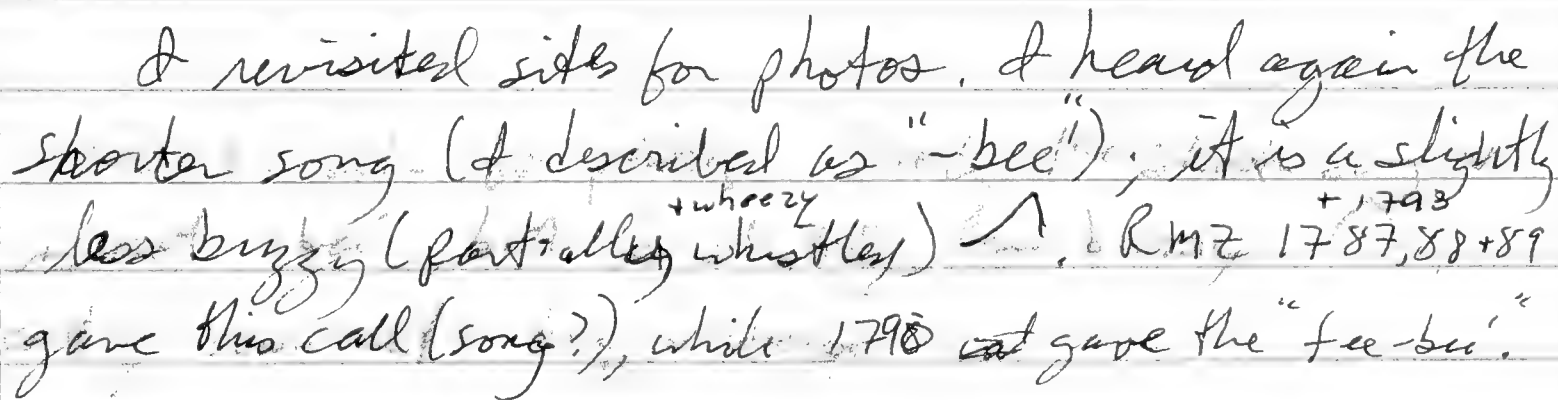 I revisited sites for photos. I heard again the
shorter song (I described as "-bee"); it is a slightly
+ wheezy + 1793
less buzzy (partially whistley) ⋀. RMZ 1787,88+89
gave this call (song?), while 1790 gave the "fee-bee."